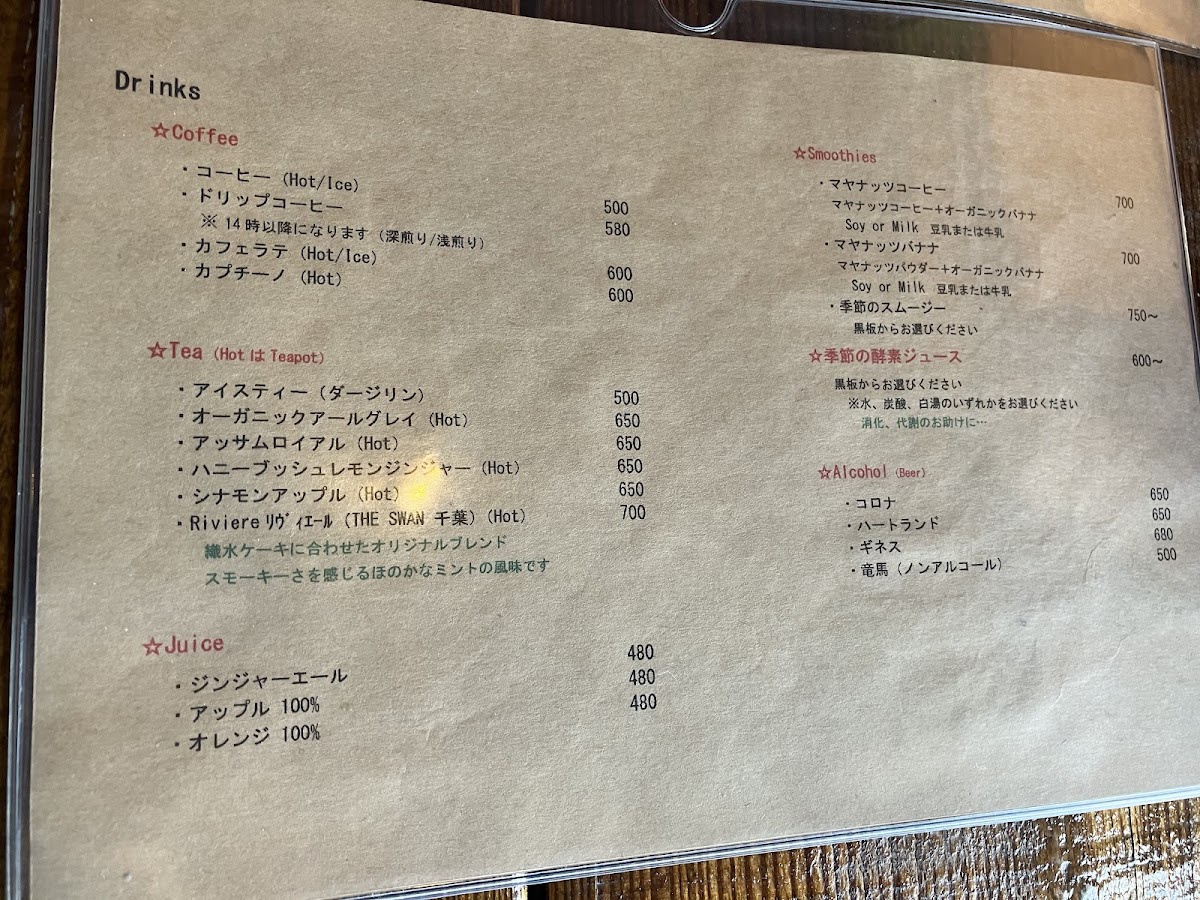 Drinks
☆Coffee
・コーヒー (Hot/Ice) 500
・ドリップコーヒー 580
※ 14時以降になります (深煎り/浅煎り)
・カフェラテ (Hot/Ice) 600
・カプチーノ (Hot) 600
☆Tea (Hot は Teapot)
・アイスティー (ダージリン) 500
・オーガニックアールグレイ (Hot) 650
・アッサムロイアル (Hot) 650
・ハニーブッシュレモンジンジャー (Hot) 650
・シナモンアップル (Hot) 650
・Riviere リヴィエール (THE SWAN 千葉) (Hot) 700
織水ケーキに合わせたオリジナルブレンド
スモーキーさを感じるほのかなミントの風味です
☆Juice
・ジンジャーエール 480
・アップル 100% 480
・オレンジ 100% 480
☆Smoothies
・マヤナッツコーヒー 700
マヤナッツコーヒー+オーガニックバナナ
Soy or Milk 豆乳または牛乳
・マヤナッツバナナ 700
マヤナッツパウダー+オーガニックバナナ
Soy or Milk 豆乳または牛乳
・季節のスムージー 750～
黒板からお選びください
☆季節の酵素ジュース 600～
黒板からお選びください
※水、炭酸、白湯のいずれかをお選びください
消化、代謝のお助けに…
☆Alcohol (Beer)
・コロナ 650
・ハートランド 650
・ギネス 680
・竜馬 (ノンアルコール) 500